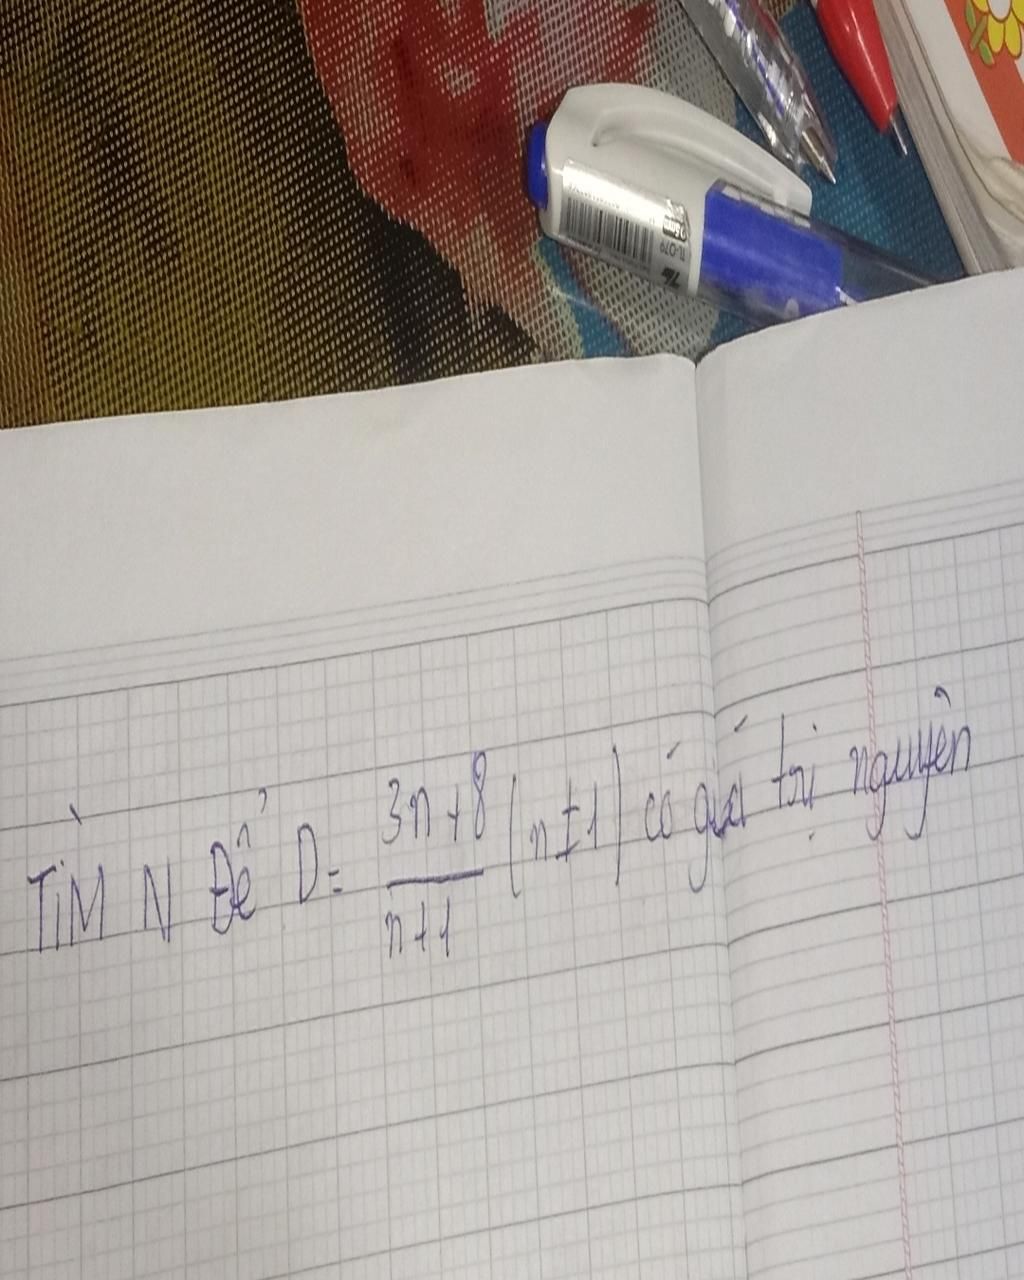 TÌM N Để D = \frac{3n+8}{n+1} (n ≠ 1) có giá trị nguyên
TL-079